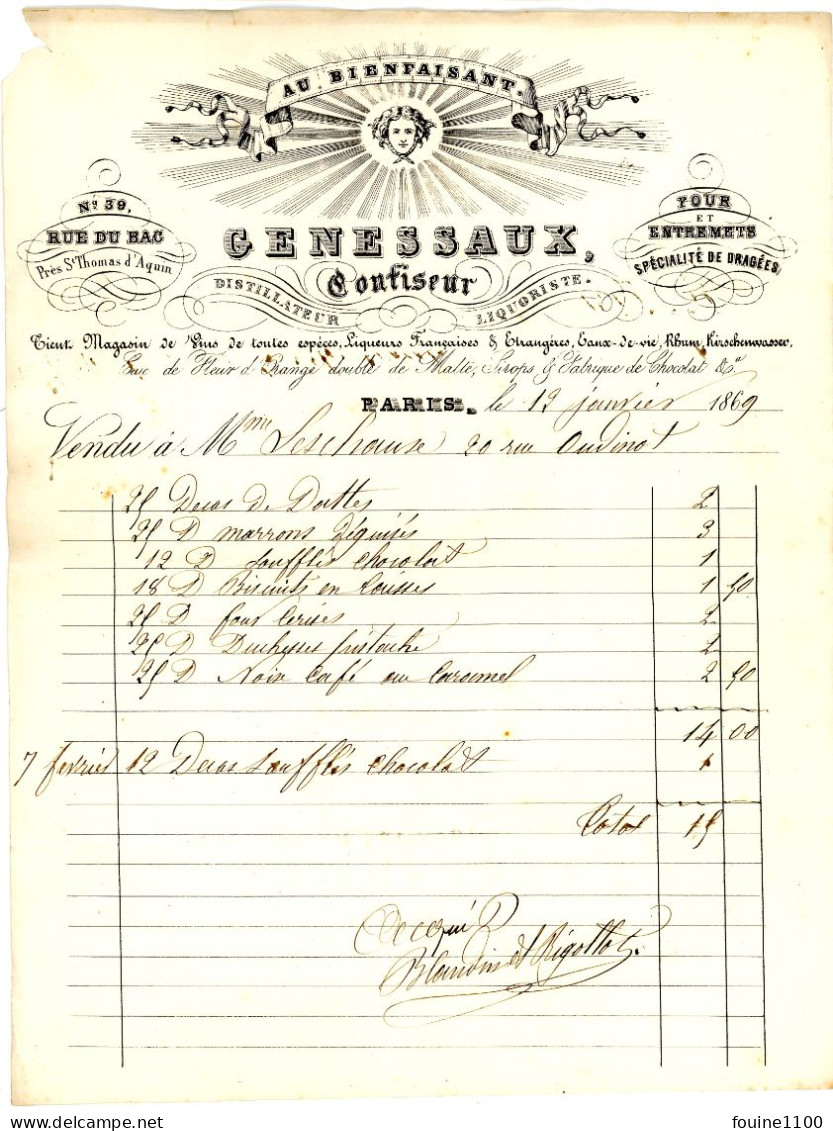 AU BIENFAISANT.
No. 39,
RUE DU BAC
Près St. Thomas d'Aquin
FOUR
ET
ENTREMETS
SPÉCIALITÉ DE DRAGÉES
GENESSAUX,
Confiseur
DISTILLATEUR LIQUORISTE.
Tient Magasin de Vins de toutes espèces, Liqueurs Françaises & Etrangères, Eaux-de-vie, Rhum, Kirschenwasser.
Eau de Fleur d'Orange double de Malte, Sirops & Fabrique de Chocolat &a.
PARIS, le 12 janvier 1869
Vendu à Mme 20 rue Oudinot
25 de Dattes 2
25 D marrons 3
12 D soufflés chocolat 1
18 D Biscuits en Caisses 1 50
25 D four Cerises 2
25 D Duchesses pistache 2
25 D Noix Café au Caramel 2 50
14 00
7 février 12 soufflés chocolat 1
Total 15
Blandin et Rigottot
fouine1100